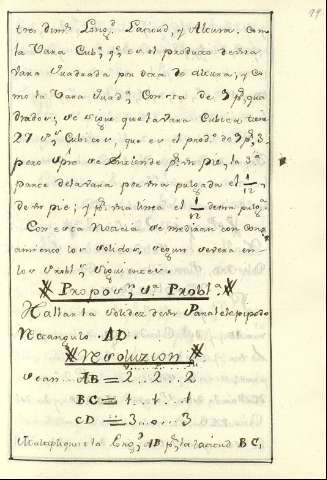 tres dim.s Long.d Latitud, y Altura. Como
la Vara Cub.ca q.e es el producto de una
vara quadrada por otra de altura, y co
mo la Vara quad.a Consta de 9 p.s qua
drados, se sigue que la vara Cubica tiene
27 p.s Cubicos, que es el prod.to de 9 p.r 3.
pero aqui se entiende p.r un pie, la 3.a
parte de la vara por una pulgada el 1/12
de un pie; y p.r una linea el 1/12 de una pulg.a
Con esta Noticia se mediran con
los solidos, segun se vera en
los Probl.s siguientes.
Propos.n 1.a Probl.a
Hallar la solidez de un Paralelepipedo
Rectangulo AD.
Resoluzion
sean AB = 2..2..2
BC = 1..1..1
CD = 3..0..3
Multipliquese la Long.d AB p.r la latitud BC,